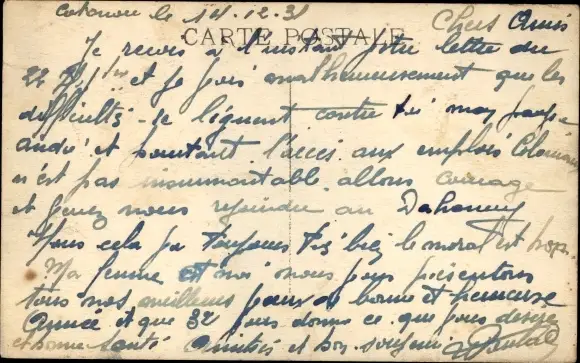 Cotonou le 14.12.31
Chers Amis
CARTE POSTALE
Je reçois à l'instant votre lettre du
22 et je vois malheureusement que les
difficultés se liguent contre
André et pourtant l'accès aux emplois
n'est pas insurmontable. allons courage
et venez nous rejoindre au Dahomey
Nous cela va toujours très bien le moral est bon
Ma femme et moi nous vous présentons
tous nos meilleurs vœux de bonne et heureuse
Année et que 32 vous donne ce que vous désirez
et bonne santé Amitiés et bon souvenir